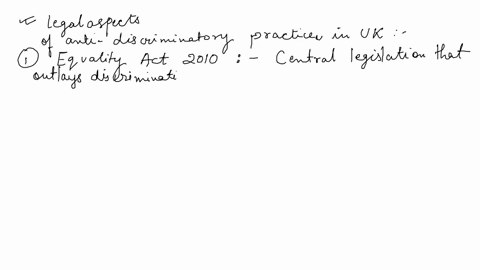 * Legal aspects
of anti-discriminatory practices in UK :-
① Equality Act 2010 :- Central legislation that
outlays discriminati